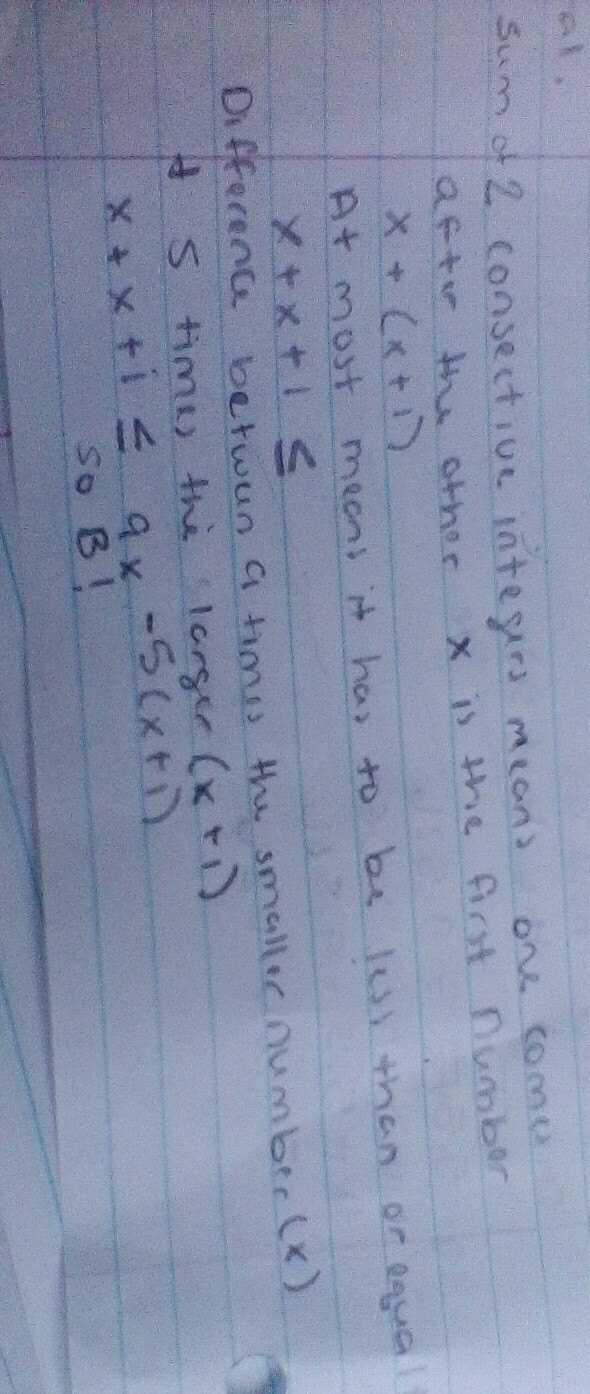 a1.
Sum of 2 consective integers means one comes
after the other x is the first number
x + (x+1)
At most means it has to be less than or equal
x + x + 1 ≤
Difference between 9 times the smaller number (x)
+ 5 times the larger (x+1)
x + x + 1 ≤ 9x - 5(x+1)
So B!